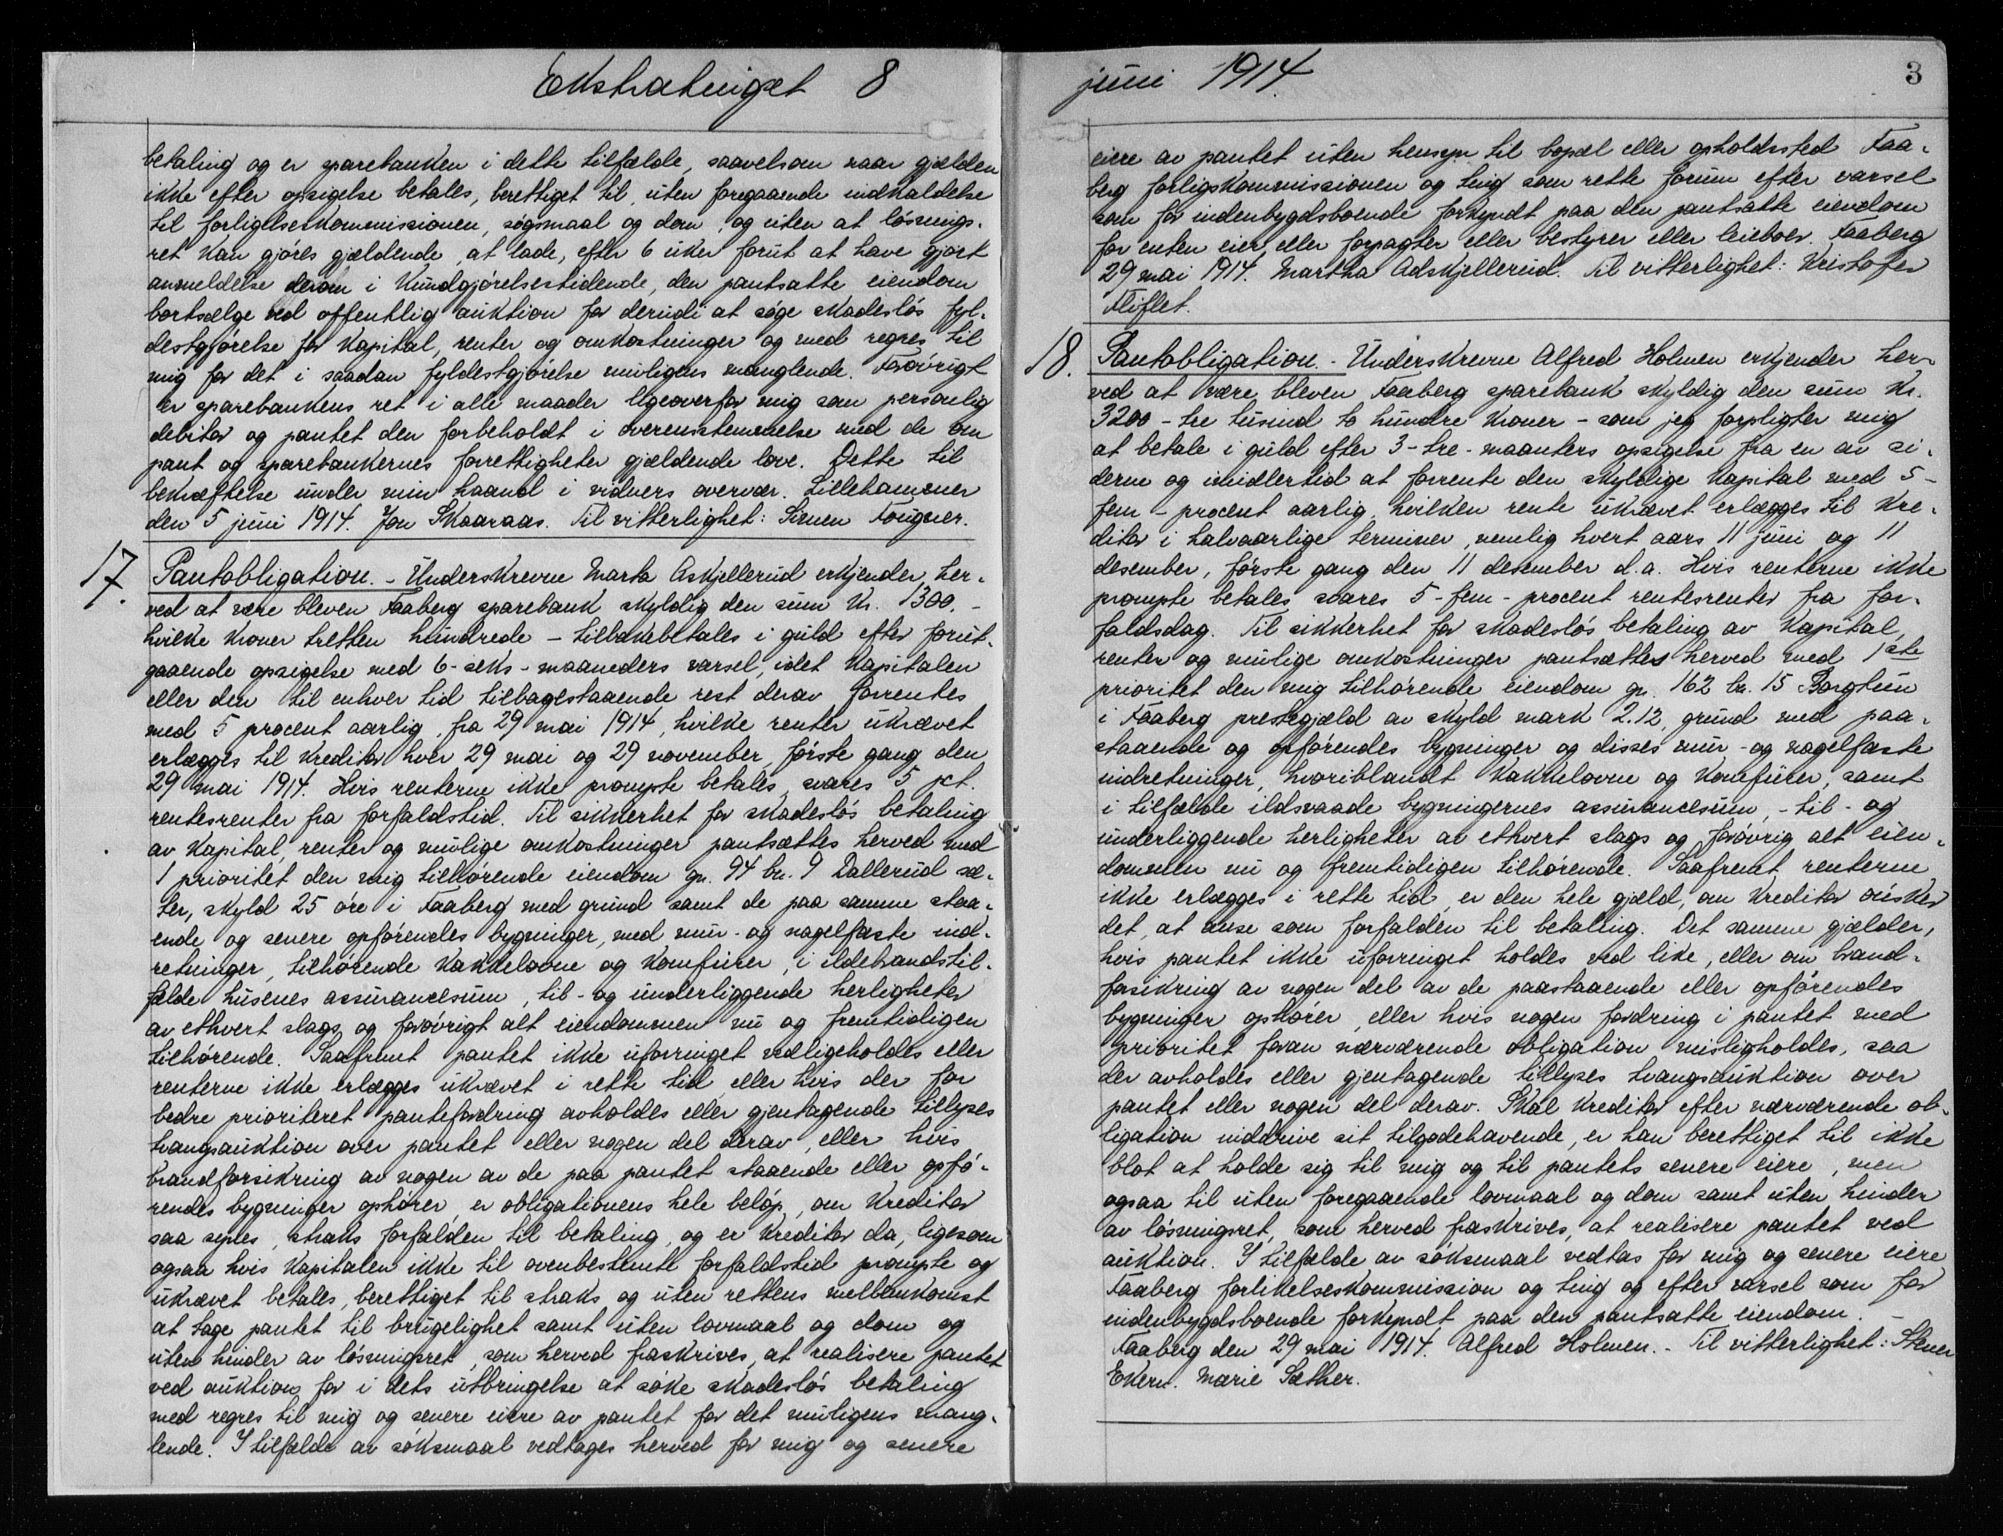 Ekstratinget 8
betaling og er sparebanken i dette tilfælde, saavelsom naar gjælden
ikke efter opsigelse betales, berettiget til, uten foregaaende indkaldelse
til forligelseskommissionen, søgsmaal og dom, og uten at løsnings-
ret kan gjøres gjældende, at lade, efter 6 uker forut at have gjort
anmeldelse derom i Kundgjørelsestidende, den pantsatte eiendom
bortsælge ved offentlig auktion for derudi at søge skadesløs fyl-
destgjørelse for kapital, renter og omkostninger og med regres til
mig for det i saadan fyldestgjørelse muligens manglende. Forøvrigt
er sparebankens ret i alle maader likeoverfor mig som personlig
debitor og pantet den forbeholdt i overensstemmelse med de om
pant og sparebankernes forrettigheter gjældende love. Dette til
bekræftelse under min haand i vidners overvær. Lillehammer
den 5 juni 1914. Jon Skaaraas. Til vitterlighet: Simen Fougner.
17. Pantobligation. - Underskrevne Marta Askjellerud erkjender her-
ved at være bleven Faaberg sparebank skyldig den sum kr. 1300. -
hvilke kroner tretten hundrede - tilbakebetales i guld efter forut-
gaaende opsigelse med 6-seks-maaneders varsel, idet kapitalen
eller den til enhver tid tilbagestaaende rest derav forrentes
med 5 procent aarlig, fra 29 mai 1914, hvilke renter ukrævet
erlægges til kreditor hver 29 mai og 29 november, første gang den
29 mai 1914. Hvis renterne ikke prompte betales, svares 5 pct.
rentesrenter fra forfaldstid. Til sikkerhet for skadesløs betaling
av kapital, renter og mulige omkostninger pantsættes herved med
1 prioritet den mig tilhørende eiendom gr. 94 br. 9 Dallerud sæ-
ter, skyld 25 øre i Faaberg med grund samt de paa samme staa-
ende og senere opførendes bygninger, med mur- og nagelfaste ind-
retninger, tilhørende kakkelovne og komfurer, i ildebrandstil-
fælde husenes assurancesum, til- og underliggende herligheter
av ethvert slags og forøvrigt alt eiendommen nu og fremtidigen
tilhørende. Saafremt pantet ikke uforringet vedligeholdes eller
renterne ikke erlægges ukrævet i rette tid, eller hvis der for
bedre prioriteret pantefordring avholdes eller gjentagende tillyses
tvangsauktion over pantet eller nogen del derav, eller hvis
brandforsikring av nogen av de paa pantet staaende eller opfø-
rendes bygninger ophører, er obligationens hele beløp, om kreditor
saa synes, straks forfalden til betaling, og er kreditor da, ligesom
ogsaa hvis kapitalen ikke til ovenbestemte forfaldstid prompte og
ukrævet betales, berettiget til straks og uten rettens mellemkomst
at tage pantet til brugelighet samt uten lovmaal og dom og
uten hinder av løsningsret, som herved fraskrives, at realisere pantet
ved auktion for i dets utbringelse at søke skadesløs betaling
med regres til mig og senere eiere av pantet for det muligens mang-
lende. I tilfælde av søksmaal vedtages herved for mig og senere
juni 1914.
3
eiere av pantet uten hensyn til bopæl eller opholdssted Faa-
berg forligskommissionen og ting som rette forum efter varsel
som for indenbygdsboende forkyndt paa den pantsatte eiendom
for enten eier eller forpagter eller bestyrer eller leieboer. Faaberg
29 mai 1914. Martha Adskjellerud. Til vitterlighet: Kristofer
Fliflet.
18. Pantobligation. - Underskrevne Alfred Holmen erkjender her-
ved at være bleven Faaberg sparebank skyldig den sum kr.
3200 - tre tusind to hundre kroner - som jeg forpligter mig
at betale i guld efter 3-tre-maanters opsigelse fra en av si-
derne og imidlertid at forrente den skyldige kapital med 5-
fem - procent aarlig, hvilken rente ukrævet erlægges til kre-
ditor i halvaarlige terminer, nemlig hvert aars 11 juni og 11
desember, første gang den 11 desember d.a. Hvis renterne ikke
prompte betales svares 5-fem-procent rentesrenter fra for-
faldsdag. Til sikkerhet for skadesløs betaling av kapital,
renter og mulige omkostninger pantsættes herved med 1ste
prioritet den mig tilhørende eiendom gr. 162 br. 15 Borgtun
i Faaberg prestegjæld av skyld mark 2.12, grund med paa-
staaende og opførendes bygninger og disses mur- og nagelfaste
indretninger, hvoriblandt kakkelovne og komfurer, samt
i tilfælde ildsvaade bygningernes assurancesum, - til- og
underliggende herligheter av ethvert slags og forøvrig alt eien-
dommen nu og fremtidigen tilhørende. Saafremt renterne
ikke erlægges i rette tid, er den hele gjæld, om kreditor ønsker
det, at anse som forfalden til betaling. Det samme gjælder,
hvis pantet ikke uforringet holdes ved like, eller om brand-
forsikring av nogen del av de paastaaende eller opførendes
bygninger ophører, eller hvis nogen fordring i pantet med
prioritet foran nærværende obligation misligholdes, saa
der avholdes eller gjentagende tillyses tvangsauktion over
pantet eller nogen del derav. Skal kreditor efter nærværende ob-
ligation inddrive sit tilgodehavende, er han berettiget til ikke
blot at holde sig til mig og til pantets senere eiere, men
ogsaa til uten foregaaende lovmaal og dom samt uten hinder
av løsningsret, som herved fraskrives, at realisere pantet ved
auktion. I tilfælde av søksmaal vedtas for mig og senere eiere
Faaberg forlikelseskommission og ting og efter varsel som for
indenbygdsboende forkyndt paa den pantsatte eiendom. -
Faaberg den 29 mai 1914. Alfred Holmen. - Til vitterlighet: Stener
Ekern. Marie Sæther.